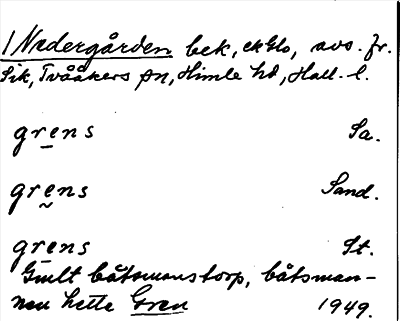 1 Nedergården bek, ekblo, avs. fr.
Sik, Tvååkers sn, Himle hd, Hall. l.
grens Sa.
grens Sand.
grens St.
Gmlt båtsmanstorp, båtsman-
nen hette Gren 1949.